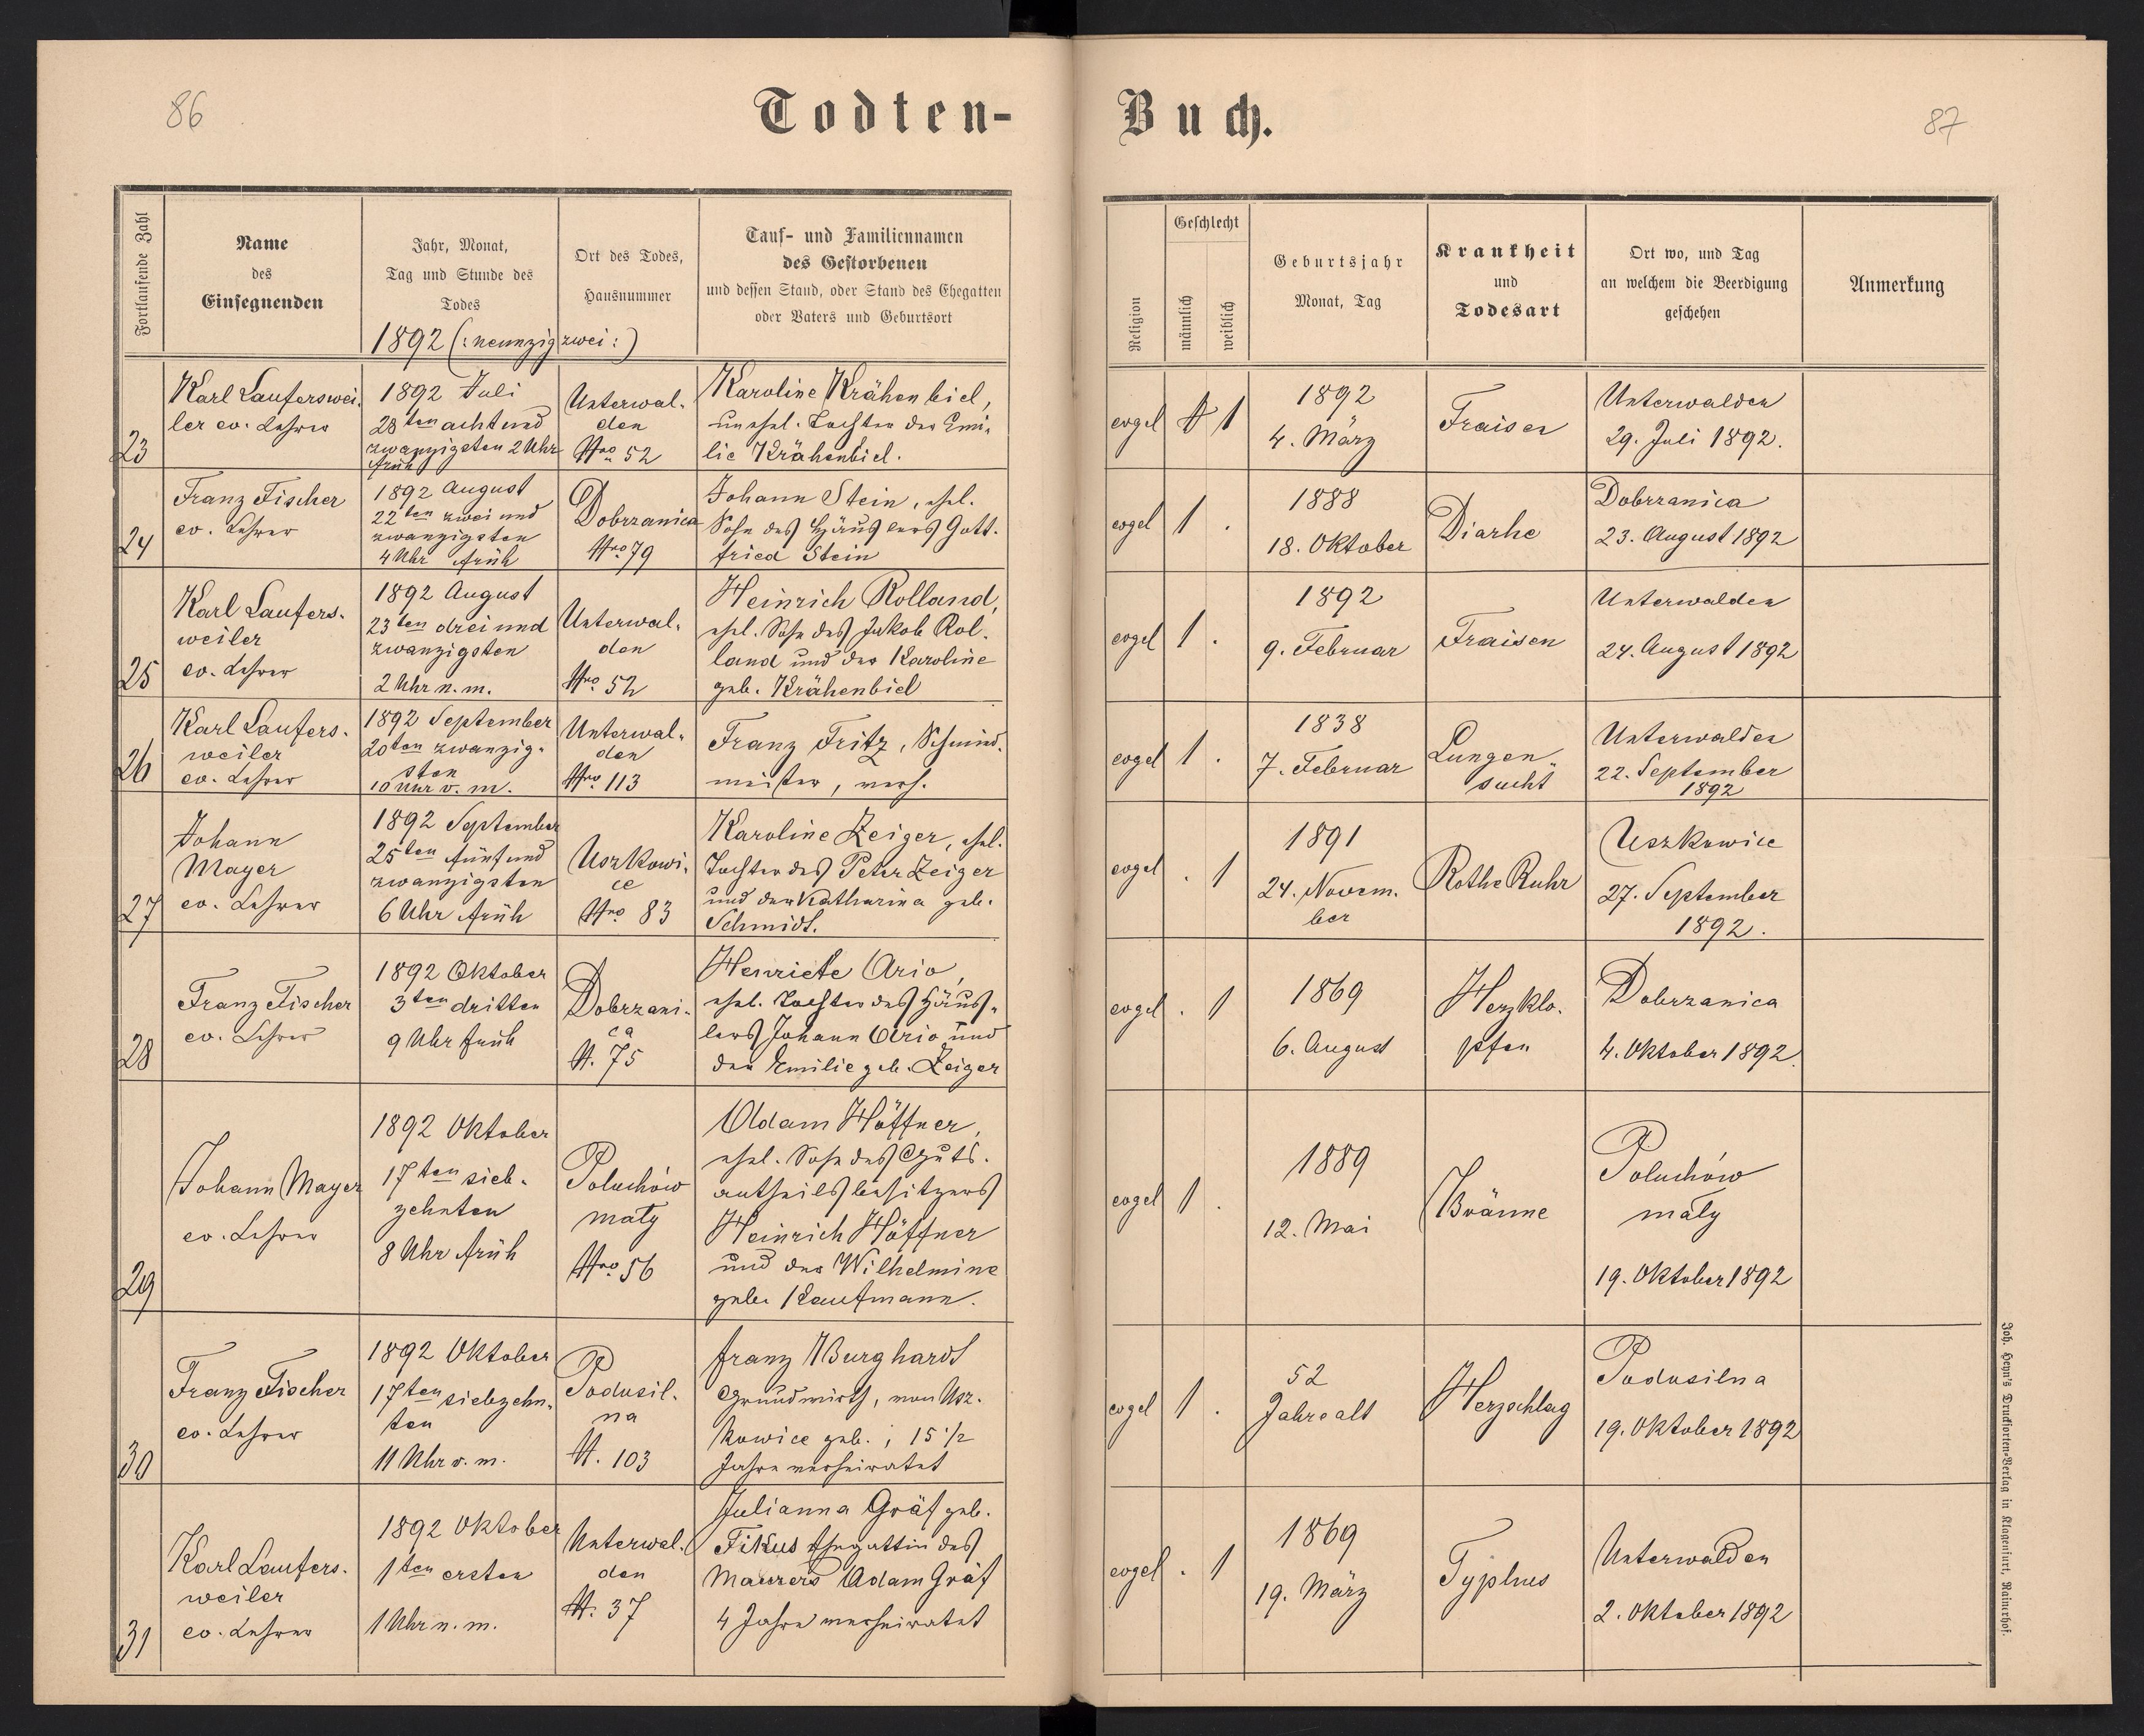 86
Todten-
Buch.
87
Fortlaufende Zahl
Name
des
Einsegnenden
Jahr, Monat,
Tag und Stunde des
Todes
Ort des Todes,
Hausnummer
Tauf- und Familiennamen
des Gestorbenen
und dessen Stand, oder Stand des Ehegatten
oder Vaters und Geburtsort
Religion
Geschlecht
männlich
weiblich
Geburtsjahr
Monat, Tag
Krankheit
und
Todesart
Ort wo, und Tag
an welchem die Beerdigung
geschehen
Anmerkung
1892 (: neunzig zwei :)
23
Karl Lauferswei-
ler ev. Lehrer
1892 Juli
28ten acht und
zwanzigsten 2 Uhr
früh
Unterwal-
den
Nro 52
Karoline Krähenbiel,
unehel. Tochter der Emi-
lie Krähenbiel.
evgel
1
1892
4. März
Fraisen
Unterwalden
29. Juli 1892.
24
Franz Fischer
ev. Lehrer
1892 August
22ten zwei und
zwanzigsten
4 Uhr früh
Dobrzanica
Nro 79
Johann Stein, ehel.
Sohn des Häuslers Gott-
fried Stein
evgel
1 .
1888
18. Oktober
Diarhe
Dobrzanica
23. August 1892
25
Karl Laufers-
weiler
ev. Lehrer
1892 August
23ten drei und
zwanzigsten
2 Uhr n. m.
Unterwal-
den
Nro 52
Heinrich Rolland,
ehel. Sohn des Jakob Rol-
land und der Karoline
geb. Krähenbiel
evgel
1 .
1892
9. Februar
Fraisen
Unterwalden
24. August 1892
26
Karl Laufers-
weiler
ev. Lehrer
1892 September
20ten zwanzig-
sten
10 Uhr v. m.
Unterwal-
den
Nro 113
Franz Fritz, Schmied-
meister, verh.
evgel
1 .
1838
7. Februar
Lungen-
sucht
Unterwalden
22. September
1892
27
Johann
Mayer
ev. Lehrer
1892 September
25ten fünf und
zwanzigsten
6 Uhr früh
Uszkowi-
ce
Nro 83
Karoline Zeiger, ehel.
Tochter des Peter Zeiger
und der Katharina geb.
Schmidt.
evgel
. 1
1891
24. Novem-
ber
Rothe Ruhr
Uszkowice
27. September
1892.
28
Franz Fischer
ev. Lehrer
1892 Oktober
3ten dritten
9 Uhr früh
Dobrzani-
ca
N. 75
Henriete Ario,
ehel. Tochter des Häus-
lers Johann Ario und
der Emilie geb. Zeiger
evgel
. 1
1869
6. August
Herzklo-
pfen
Dobrzanica
4. Oktober 1892.
29
Johann Mayer
ev. Lehrer
1892 Oktober
17ten sieb-
zehnten
8 Uhr früh
Poluchów
mały
Nro 56
Adam Höffner,
ehel. Sohn des Guts-
antheilsbesitzers
Heinrich Höffner
und der Wilhelmine
geb. Kaufmann.
evgel
1 .
1889
12. Mai
Bräune
Poluchów
mały
19. Oktober 1892
30
Franz Fischer
ev. Lehrer
1892 Oktober
17ten siebzehn-
ten
11 Uhr v. m.
Podusil-
na
N. 103
Franz Burghardt
Grundwirth, von Usz-
kowice geb.; 15 1/2
Jahre verheiratet
evgel
1 .
52
Jahre alt
Herzschlag
Podusilna
19. Oktober 1892
31
Karl Laufers-
weiler
ev. Lehrer
1892 Oktober
1ten ersten
1 Uhr n. m.
Unterwal-
den
N. 37
Julianna Gräf geb.
Fikus Ehegattin des
Maurers Adam Gräf
4 Jahre verheiratet
evgel
. 1
1869
19. März
Typhus
Unterwalden
2. Oktober 1892
Joh. Heyn's Drucksorten-Verlag in Klagenfurt, Rainerhof.